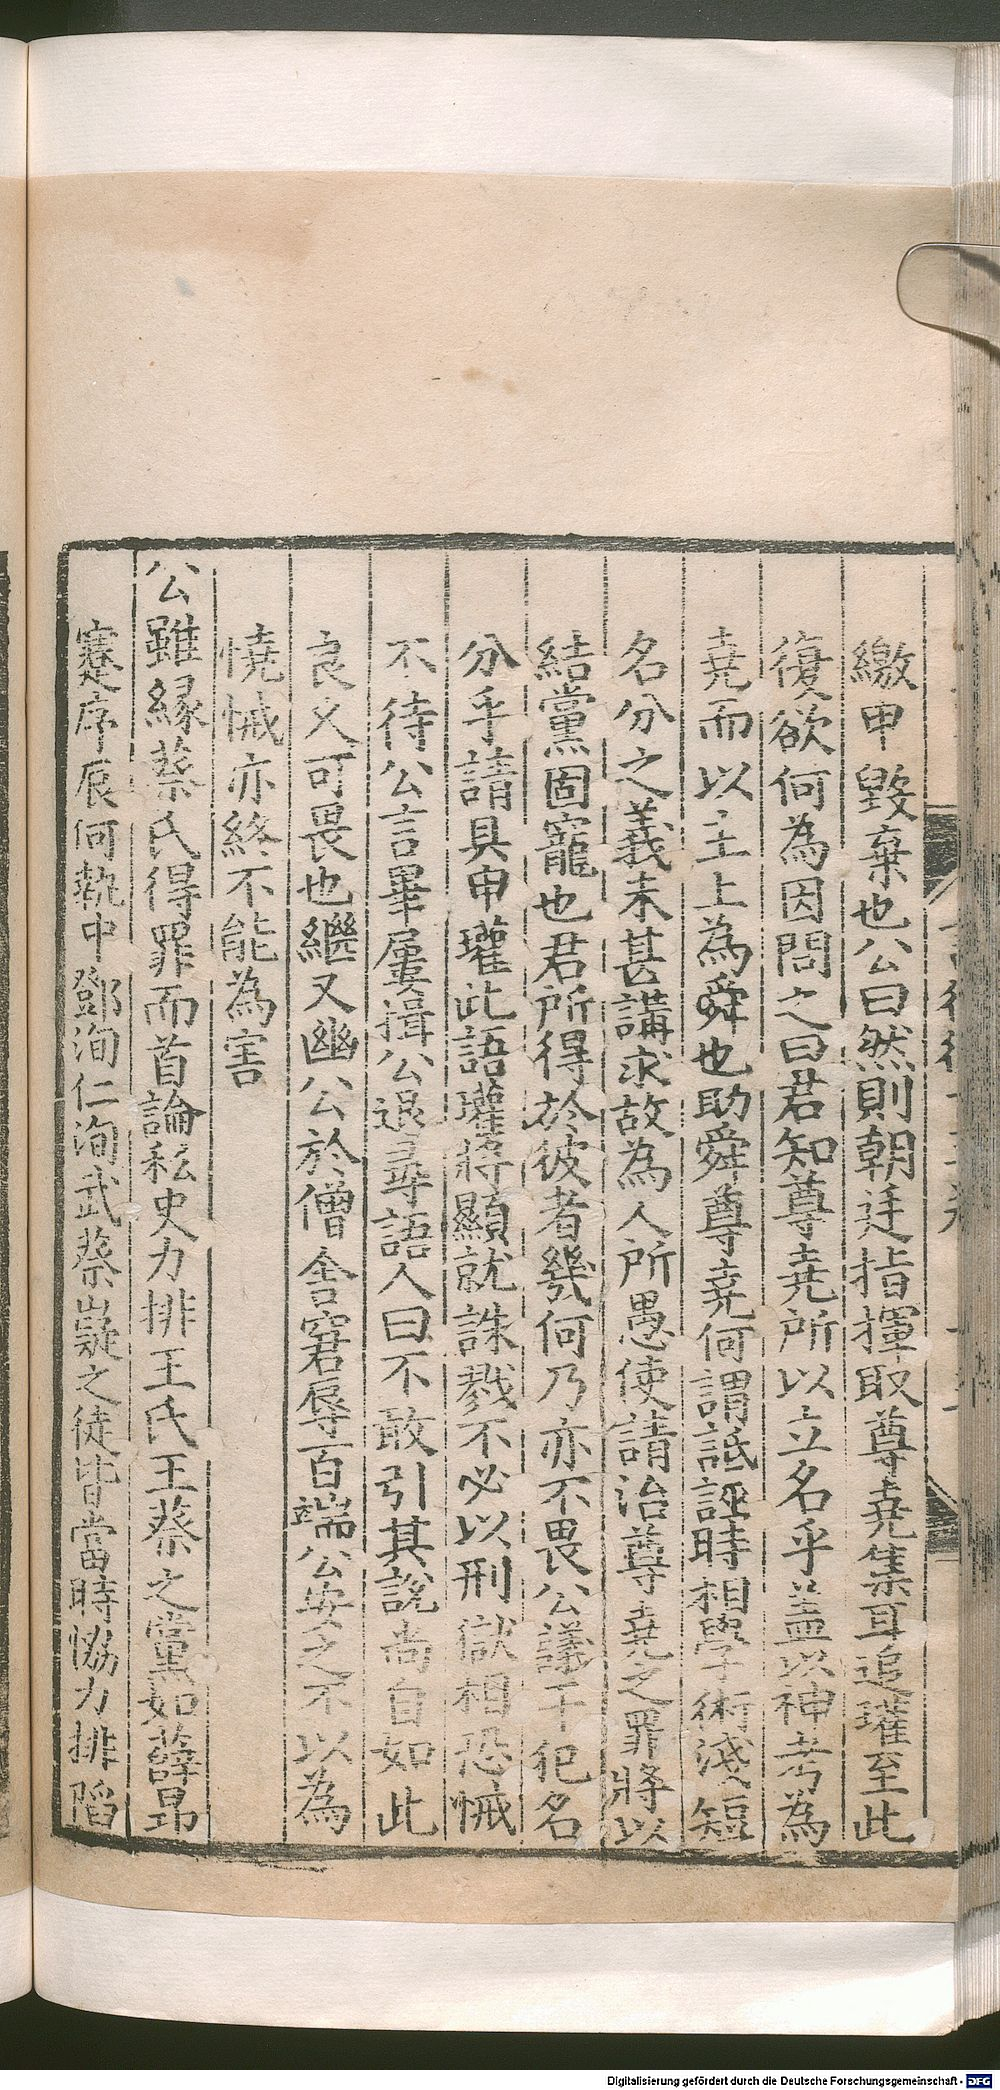 繳申毀棄也公曰然則朝廷指揮取尊堯集耳追瓘至此
復欲何為因問之曰君知尊堯所以立名乎盖以神考為
堯而以主上為舜也助舜尊堯何謂詆誣時相學術淺短
名分之義未甚講求故為人所愚使請治尊堯之罪將以
結黨固寵也君所得於彼者幾何乃亦不畏公議干犯名
分乎請具申瓘此語瓘將顯就誅戮不必以刑獄相恐悈
不待公言畢屢揖公退尋語人曰不敢引其說尚自如此
良又可畏也繼又幽公於僧舍窘辱百端公安之不以為
憢悈亦終不能為害
公雖緣蔡氏得罪而首論私史力排王氏王蔡之黨如薛昂
蹇序辰何執中鄧洵仁洵武蔡嶷之徒皆當時協力排陷
Digitalisierung gefördert durch die Deutsche Forschungsgemeinschaft - DFG